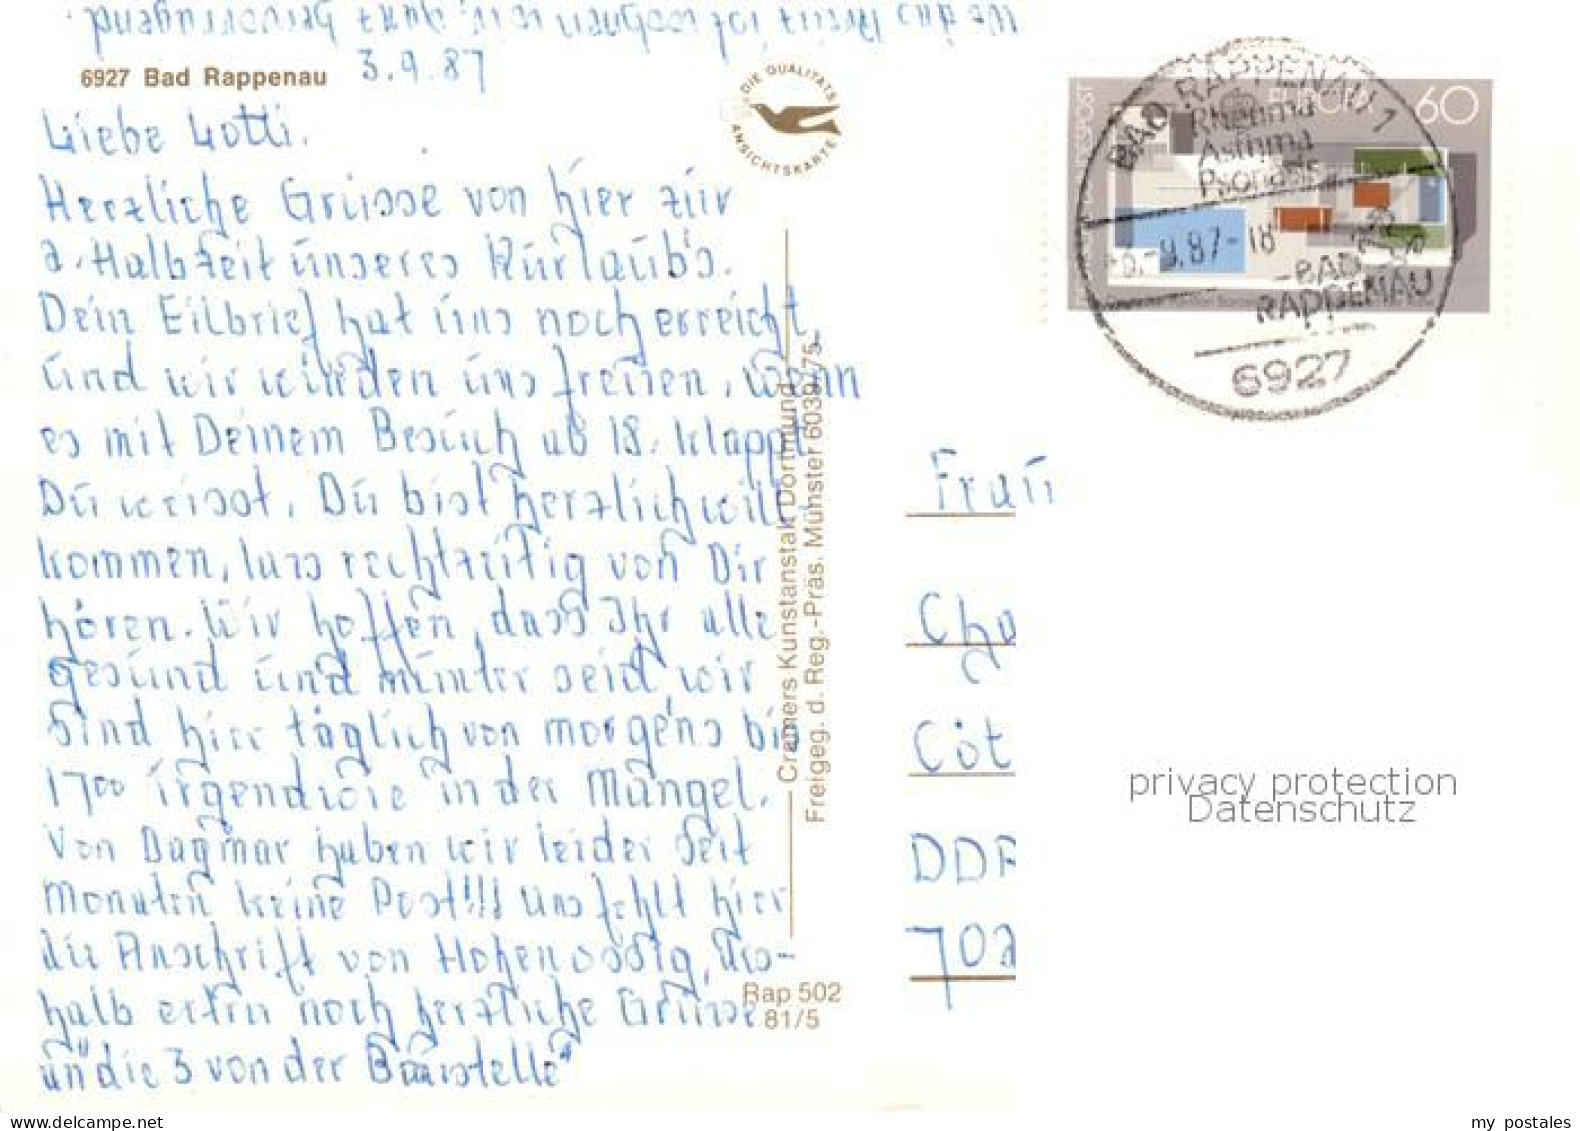 6927 Bad Rappenau 3.9.87
Liebe Lotti.
Herzliche Grüsse von hier zür
2. Halbzeit ünseres Kürlaüb's.
Dein Eilbrief hat üns noch erreicht,
ünd wir würden üns freüen, wenn
es mit Deinem Besüch ab 18. klappt
Dü weisst, Dü bist herzlich will-
kommen, lass rechtzeitig von Dir
hören. Wir hoffen, dass Ihr alle
gesünd ünd münter seid, wir
sind hier täglich von morgens bis
1700 irgendwie in der Mangel.
Von Dagmar haben wir leider seit
Monaten keine Post!!! Uns fehlt hier
die Anschrift von Hohenossig, des-
halb extra noch herzliche Grüsse
an die 3 von der "Baüstelle"
DIE QUALITÄTS
ANSICHTSKARTE
Cramers Kunstanstalt Dortmund
Freigeg. d. Reg.-Präs. Münster 6039/75
Rap 502
81/5
EUROPA 60
BAD RAPPENAU 1
Rheuma
Asthma
Psoriasis
9.87-18
BAD
RAPPENAU
6927
Fraü
Cha
Cöt
DDR
702
privacy protection
Datenschutz
my postales
www.delcampe.net